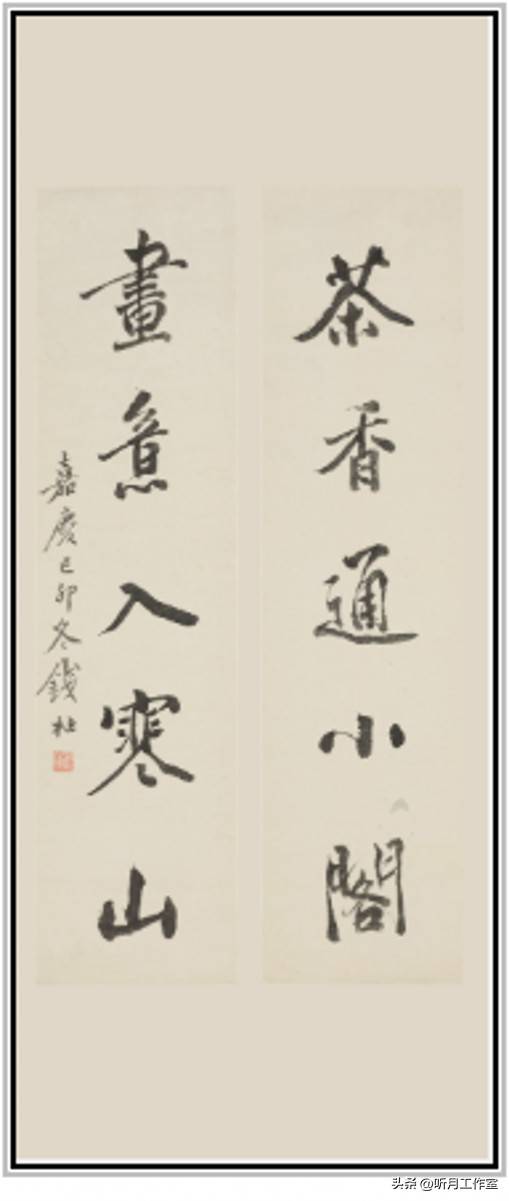 茶香通小閣
畫意入寒山
嘉慶己卯冬錢杜
头条 @听月工作室